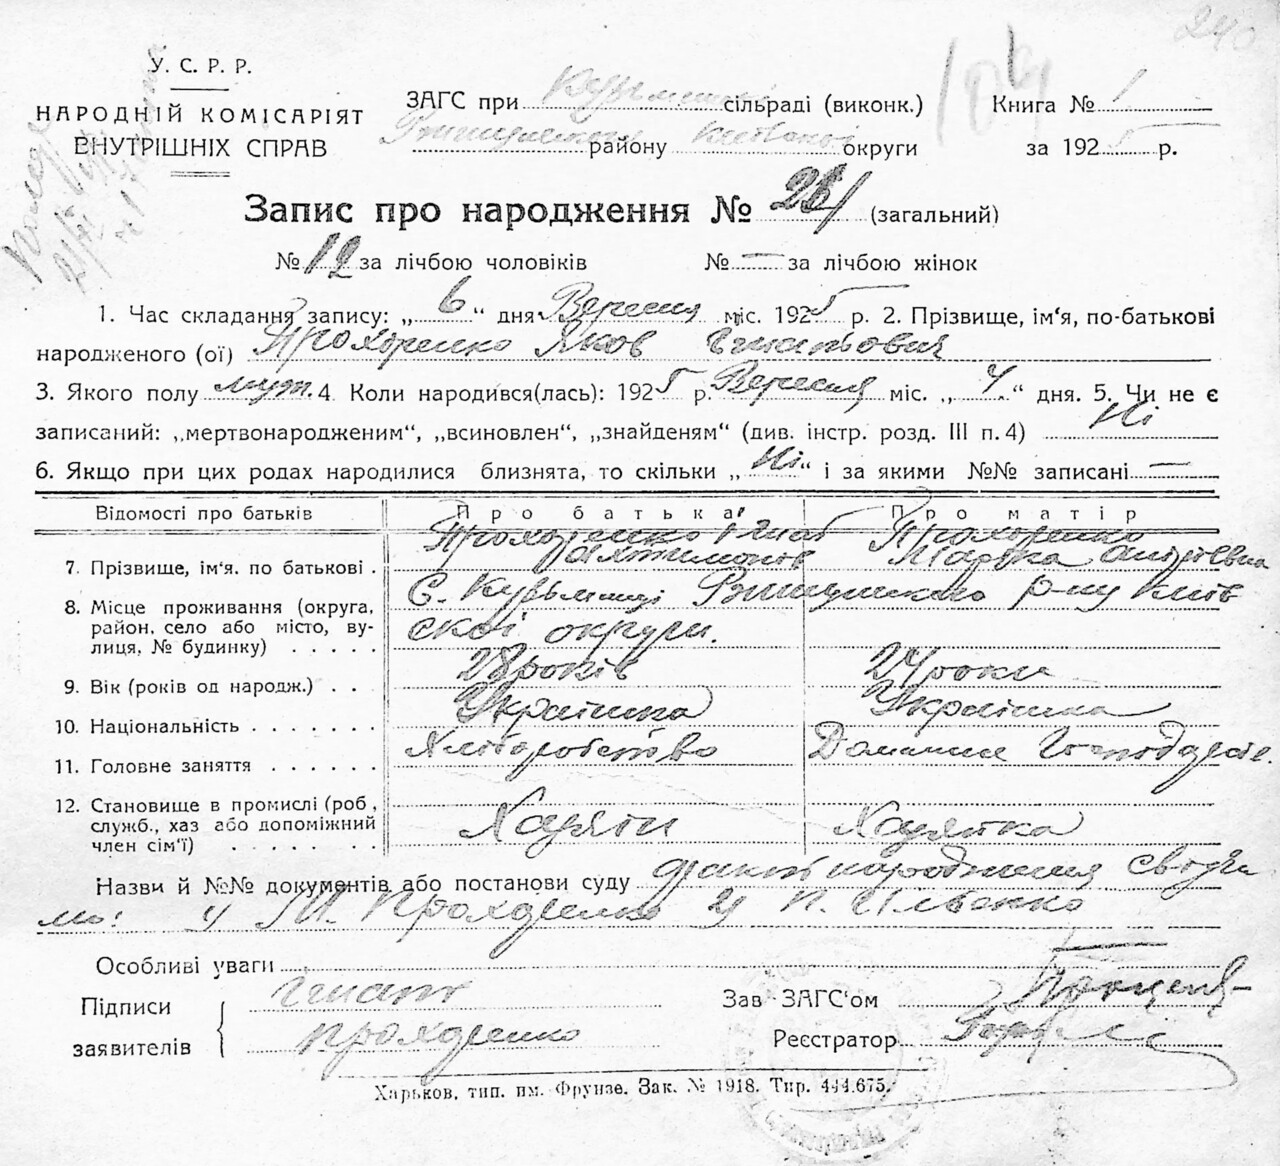 240
У. С. Р. Р.
НАРОДНІЙ КОМІСАРІЯТ
ВНУТРІШНІХ СПРАВ
ЗАГС при сільраді (виконк.) Книга № 1
району округи за 1925 р.
Запис про народження № (загальний)
№ 12 за лічбою чоловіків № — за лічбою жінок
1. Час складання запису: „ 6 “ дня Вересня міс. 1925 р. 2. Прізвище, ім‘я, по-батькові
народженого (ої) Прохоренко Яков Гнатович
3. Якого полу муж. 4. Коли народився(лась): 1925 р. Вересня міс. „ 4. “ дня. 5. Чи не є
записаний: „мертвонародженим“, „всиновлен“, „знайденям“ (див. інстр. розд. III п. 4) Ні
6. Якщо при цих родах народилися близнята, то скільки „ Ні “ і за якими №№ записані —
Відомості про батьків Про батька Про матір
7. Прізвище, ім‘я. по батькові . Прохоренко Гнат Прохоренко
Андрієвна
8. Місце проживання (округа, С. Кузьминці Ржищивського р-ну Київ
район, село або місто, ву- ської округи.
лиця, № будинку) . . . . .
9. Вік (років од народж.) . . 28 років 24 роки
10. Національність . . . . . . . Українка Українка
11. Головне заняття . . . . . . Хліборобство Домашнє Господарс.
12. Становище в промислі (роб.,
служб., хаз або допоміжний Хазяін Хазяйка
член сім‘ї) . . . . . . .
Назви й №№ документів або постанови суду факт народження свідчи
мо: 1) М. Прохоренко 2) П. Ільенко
Особливі уваги
Підписи Гнат Зав ЗАГС‘ом
заявителів Прохоренко Реєстратор
Харьков, тип. им. Фрунзе. Зак. № 1918. Тир. 444.675.